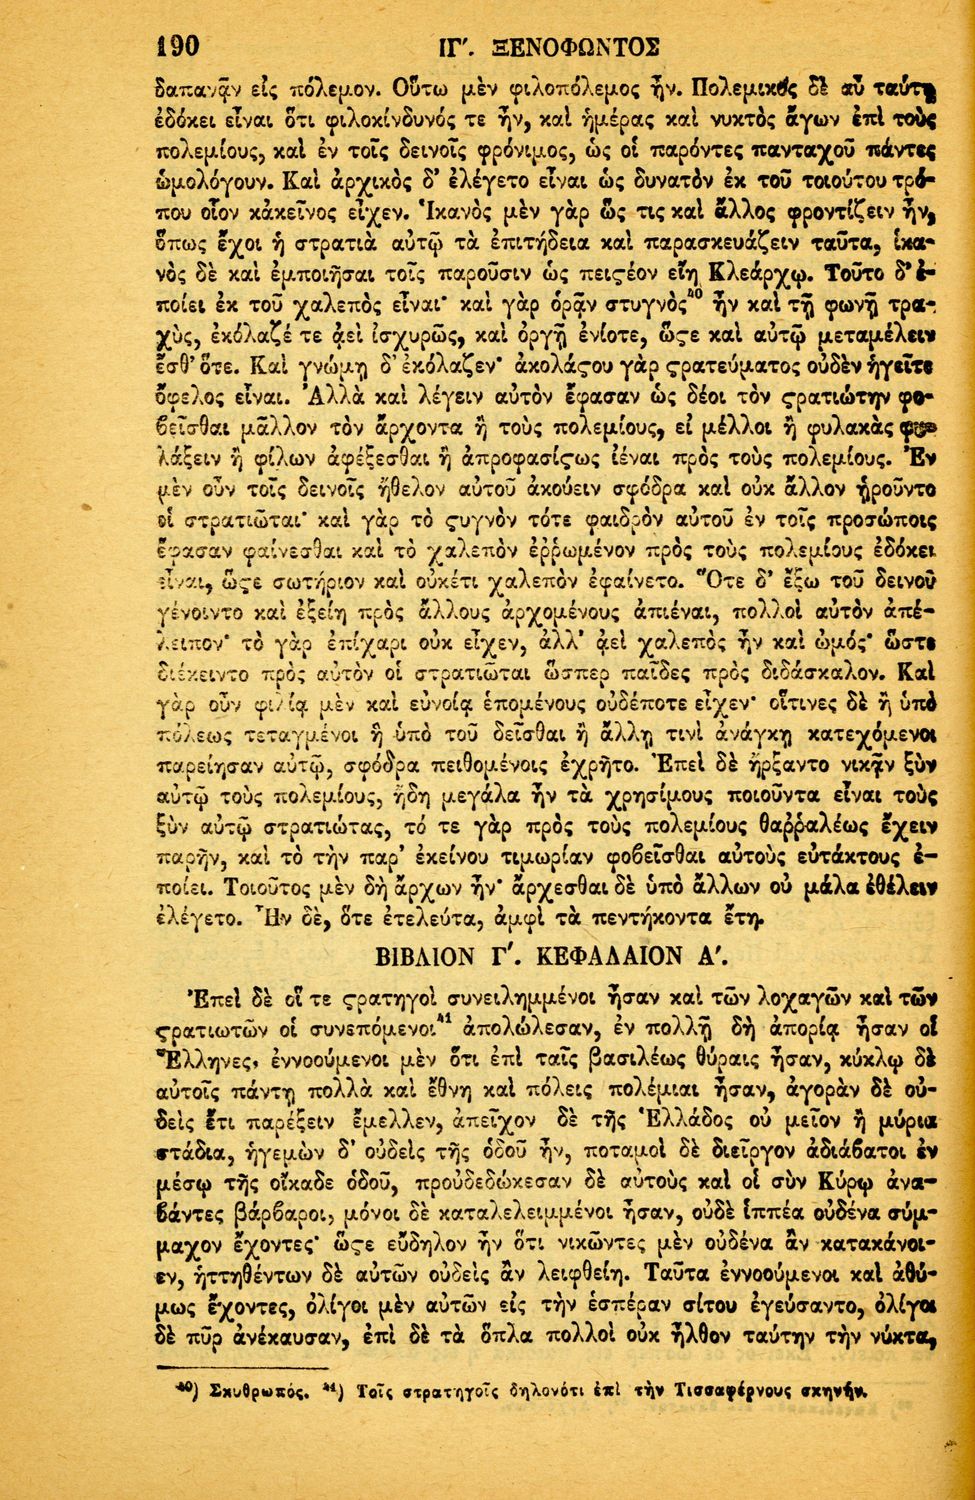 190 ΙΓʹ. ΞΕΝΟΦΩΝΤΟΣ
δαπανᾷν εἰς πόλεμον. Οὕτω μὲν φιλοπόλεμος ἦν. Πολεμικὸς δὲ αὖ ταύτῃ
ἐδόκει εἶναι ὅτι φιλοκίνδυνός τε ἦν, καὶ ἡμέρας καὶ νυκτὸς ἄγων ἐπὶ τοὺς
πολεμίους, καὶ ἐν τοῖς δεινοῖς φρόνιμος, ὡς οἱ παρόντες πανταχοῦ πάντες
ὡμολόγουν. Καὶ ἀρχικὸς δ’ ἐλέγετο εἶναι ὡς δυνατὸν ἐκ τοῦ τοιούτου τρό-
που οἷον κἀκεῖνος εἶχεν. Ἱκανὸς μὲν γὰρ ὥς τις καὶ ἄλλος φροντίζειν ἦν,
ὅπως ἔχοι ἡ στρατιὰ αὐτῷ τὰ ἐπιτήδεια καὶ παρασκευάζειν ταῦτα, ἱκα-
νὸς δὲ καὶ ἐμποιῆσαι τοῖς παροῦσιν ὡς πειϛέον εἴη Κλεάρχῳ. Τοῦτο δ’ ἐ-
ποίει ἐκ τοῦ χαλεπὸς εἶναι· καὶ γὰρ ὁρᾷν στυγνὸς⁴⁰ ἦν καὶ τῇ φωνῇ τρα-
χὺς, ἐκόλαζέ τε ἀεὶ ἰσχυρῶς, καὶ ὀργῇ ἐνίοτε, ὥϛε καὶ αὐτῷ μεταμέλειν
ἔσθ’ ὅτε. Καὶ γνώμῃ δ’ ἐκόλαζεν· ἀκολάϛου γὰρ ϛρατεύματος οὐδὲν ἡγεῖτο
ὄφελος εἶναι. Ἀλλὰ καὶ λέγειν αὐτὸν ἔφασαν ὡς δέοι τὸν ϛρατιώτην φο-
βεῖσθαι μᾶλλον τὸν ἄρχοντα ἢ τοὺς πολεμίους, εἰ μέλλοι ἢ φυλακὰς φυ-
λάξειν ἢ φίλων ἀφέξεσθαι ἢ ἀπροφασίϛως ἰέναι πρὸς τοὺς πολεμίους. Ἐν
μὲν οὖν τοῖς δεινοῖς ἤθελον αὐτοῦ ἀκούειν σφόδρα καὶ οὐκ ἄλλον ᾑροῦντο
οἱ στρατιῶται· καὶ γὰρ τὸ ϛυγνὸν τότε φαιδρὸν αὐτοῦ ἐν τοῖς προσώποις
ἔφασαν φαίνεσθαι καὶ τὸ χαλεπὸν ἐῤῥωμένον πρὸς τοὺς πολεμίους ἐδόκει
εἶναι, ὥϛε σωτήριον καὶ οὐκέτι χαλεπὸν ἐφαίνετο. Ὅτε δ’ ἔξω τοῦ δεινοῦ
γένοιντο καὶ ἐξείη πρὸς ἄλλους ἀρχομένους ἀπιέναι, πολλοὶ αὐτὸν ἀπέ-
λειπον· τὸ γὰρ ἐπίχαρι οὐκ εἶχεν, ἀλλ’ ἀεὶ χαλεπὸς ἦν καὶ ὠμός· ὥστε
διέκειντο πρὸς αὐτὸν οἱ στρατιῶται ὥσπερ παῖδες πρὸς διδάσκαλον. Καὶ
γὰρ οὖν φιλίᾳ μὲν καὶ εὐνοίᾳ ἑπομένους οὐδέποτε εἶχεν· οἵτινες δὲ ἢ ὑπὸ
πόλεως τεταγμένοι ἢ ὑπὸ τοῦ δεῖσθαι ἢ ἄλλῃ τινὶ ἀνάγκῃ κατεχόμενοι
παρείησαν αὐτῷ, σφόδρα πειθομένοις ἐχρῆτο. Ἐπεὶ δὲ ἤρξαντο νικᾷν ξὺν
αὐτῷ τοὺς πολεμίους, ἤδη μεγάλα ἦν τὰ χρησίμους ποιοῦντα εἶναι τοὺς
ξὺν αὐτῷ στρατιώτας, τό τε γὰρ πρὸς τοὺς πολεμίους θαῤῥαλέως ἔχειν
παρῆν, καὶ τὸ τὴν παρ’ ἐκείνου τιμωρίαν φοβεῖσθαι αὐτοὺς εὐτάκτους ἐ-
ποίει. Τοιοῦτος μὲν δὴ ἄρχων ἦν· ἄρχεσθαι δὲ ὑπὸ ἄλλων οὐ μάλα ἐθέλειν
ἐλέγετο. Ἦν δὲ, ὅτε ἐτελεύτα, ἀμφὶ τὰ πεντήκοντα ἔτη.
ΒΙΒΛΙΟΝ Γʹ. ΚΕΦΑΛΑΙΟΝ Αʹ.
Ἐπεὶ δὲ οἵ τε ϛρατηγοὶ συνειλημμένοι ἦσαν καὶ τῶν λοχαγῶν καὶ τῶν
ϛρατιωτῶν οἱ συνεπόμενοι⁴¹ ἀπολώλεσαν, ἐν πολλῇ δὴ ἀπορίᾳ ἦσαν οἱ
Ἕλληνες, ἐννοούμενοι μὲν ὅτι ἐπὶ ταῖς βασιλέως θύραις ἦσαν, κύκλῳ δὲ
αὐτοῖς πάντῃ πολλὰ καὶ ἔθνη καὶ πόλεις πολέμιαι ἦσαν, ἀγορὰν δὲ οὐ-
δεὶς ἔτι παρέξειν ἔμελλεν, ἀπεῖχον δὲ τῆς Ἑλλάδος οὐ μεῖον ἢ μύρια
στάδια, ἡγεμὼν δ’ οὐδεὶς τῆς ὁδοῦ ἦν, ποταμοὶ δὲ διεῖργον ἀδιάβατοι ἐν
μέσῳ τῆς οἴκαδε ὁδοῦ, προὐδεδώκεσαν δὲ αὐτοὺς καὶ οἱ σὺν Κύρῳ ἀνα-
βάντες βάρβαροι, μόνοι δὲ καταλελειμμένοι ἦσαν, οὐδὲ ἱππέα οὐδένα σύμ-
μαχον ἔχοντες· ὥϛε εὔδηλον ἦν ὅτι νικῶντες μὲν οὐδένα ἂν κατακάνοι-
εν, ἡττηθέντων δὲ αὐτῶν οὐδεὶς ἂν λειφθείη. Ταῦτα ἐννοούμενοι καὶ ἀθύ-
μως ἔχοντες, ὀλίγοι μὲν αὐτῶν εἰς τὴν ἑσπέραν σίτου ἐγεύσαντο, ὀλίγοι
δὲ πῦρ ἀνέκαυσαν, ἐπὶ δὲ τὰ ὅπλα πολλοὶ οὐκ ἦλθον ταύτην τὴν νύκτα,
⁴⁰) Σκυθρωπός. ⁴¹) Τοῖς στρατηγοῖς δηλονότι ἐπὶ τὴν Τισσαφέρνους σκηνήν.